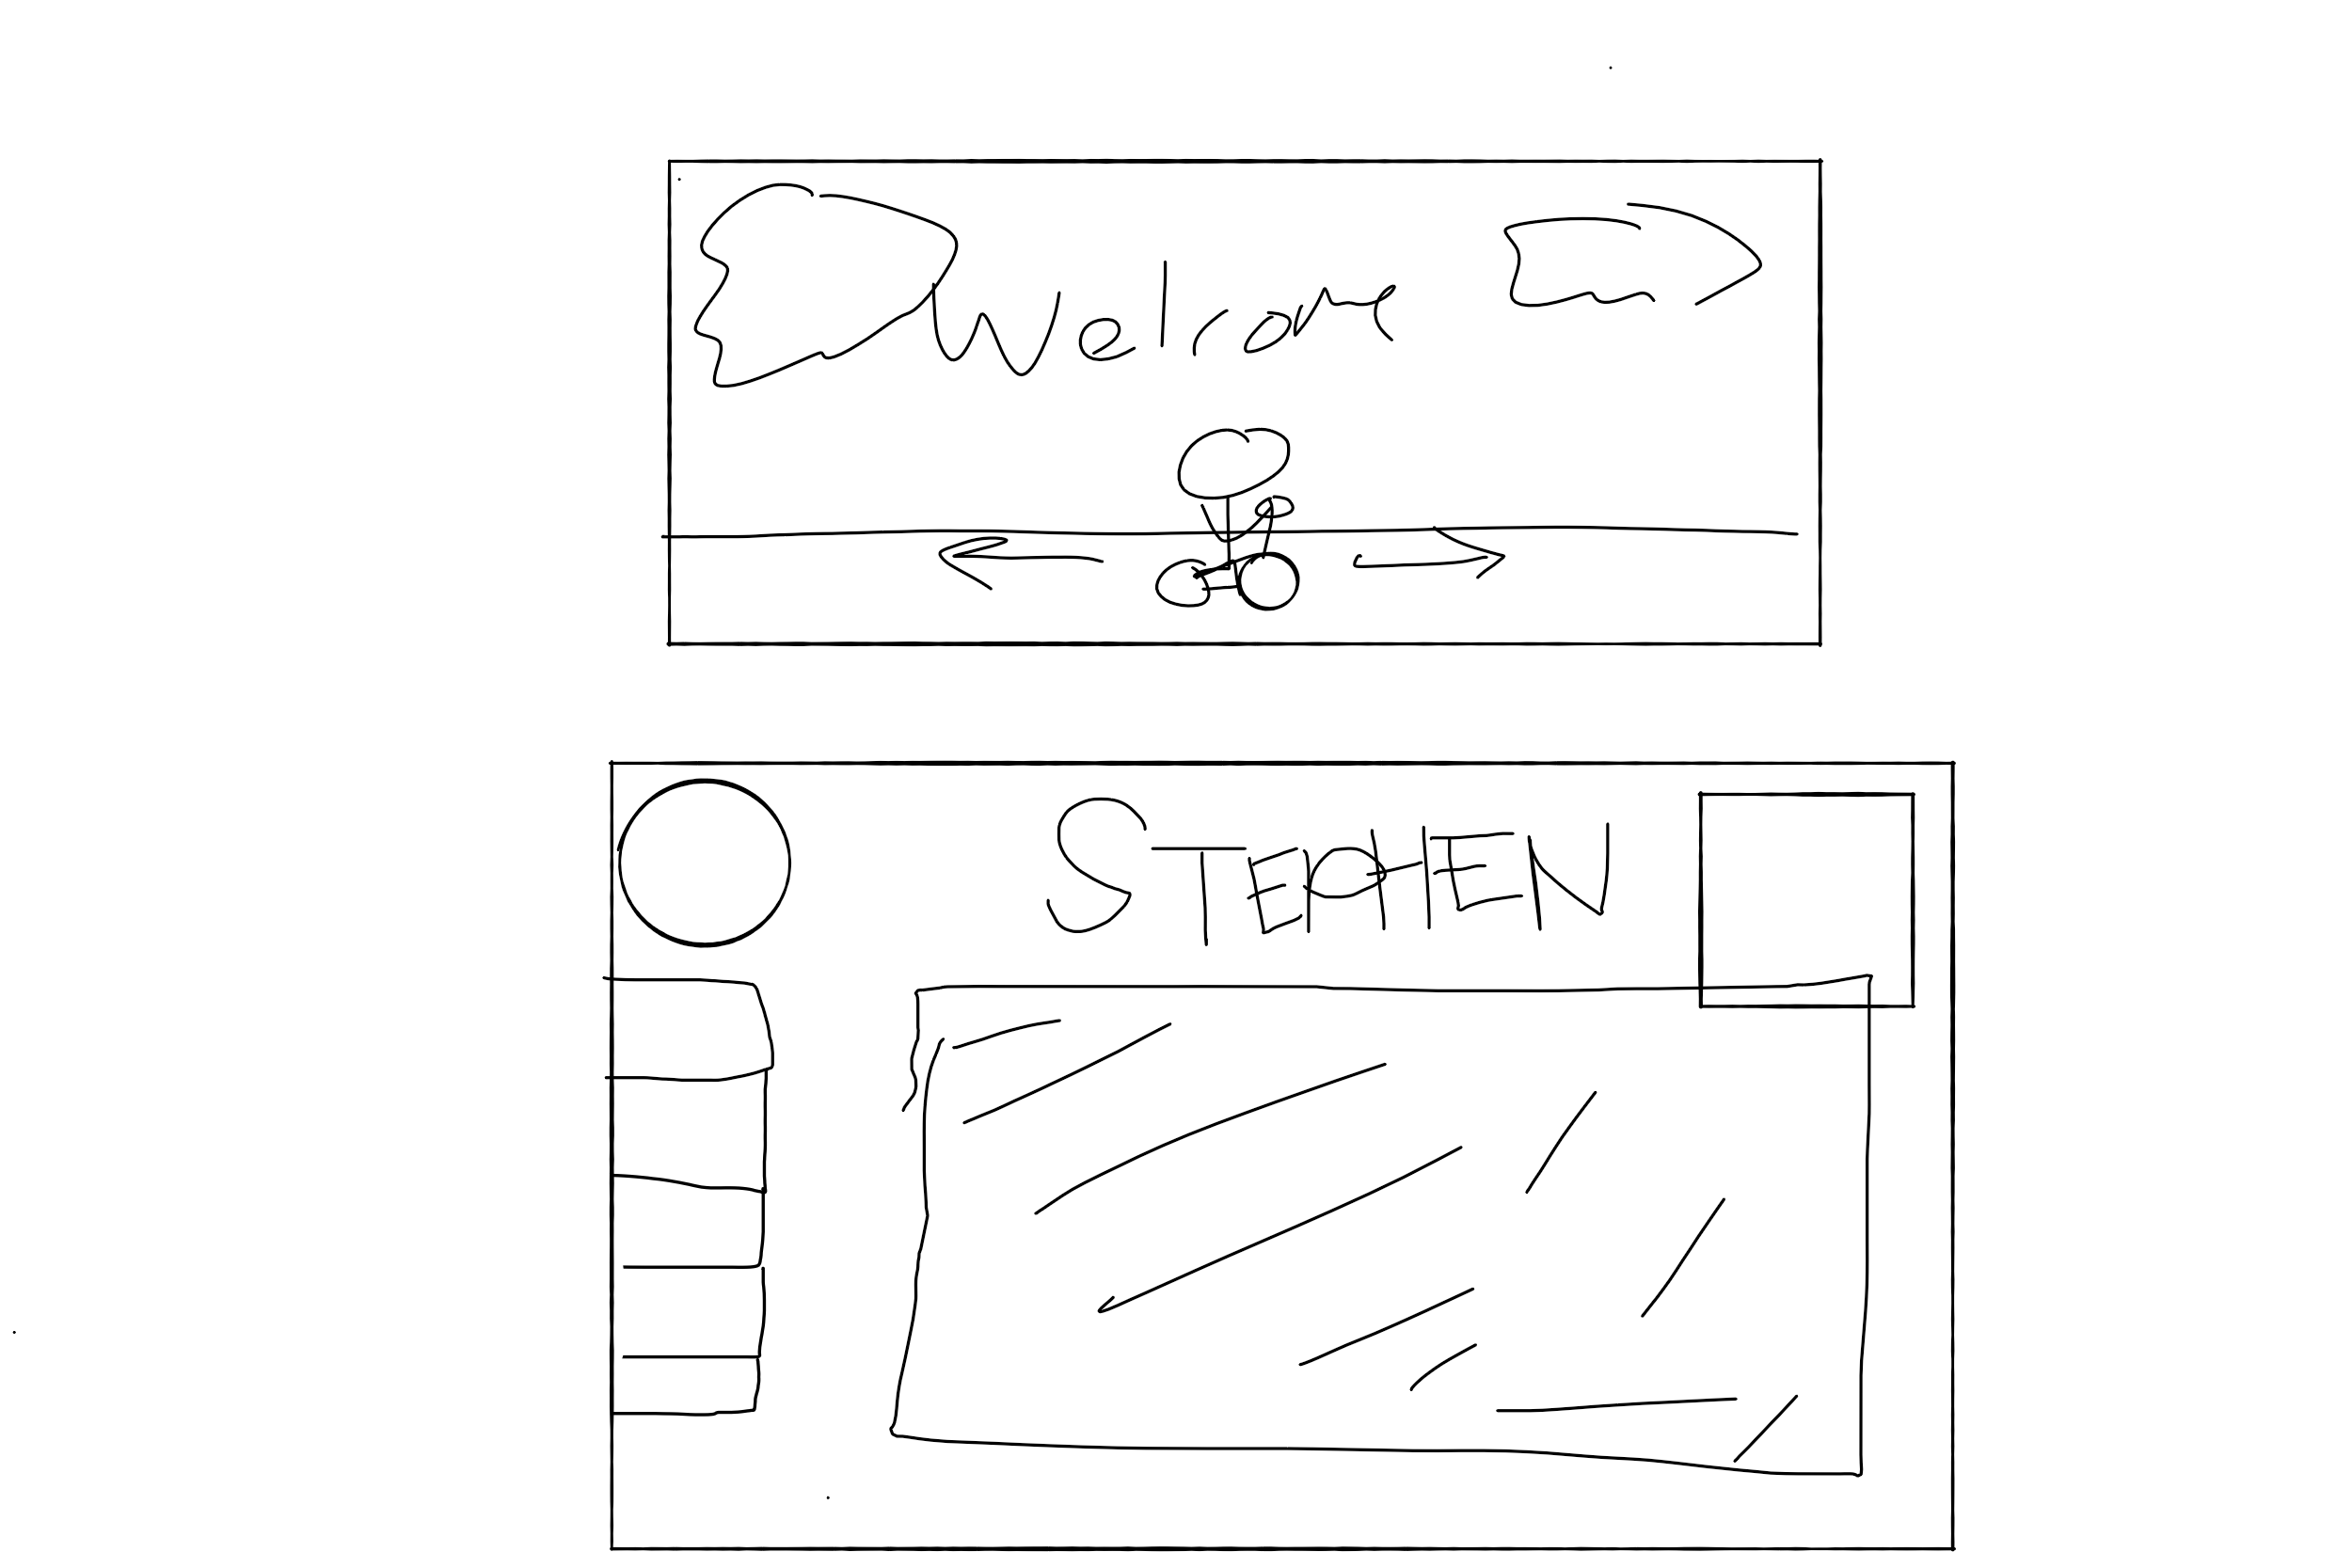 Welcome
STEPHEN